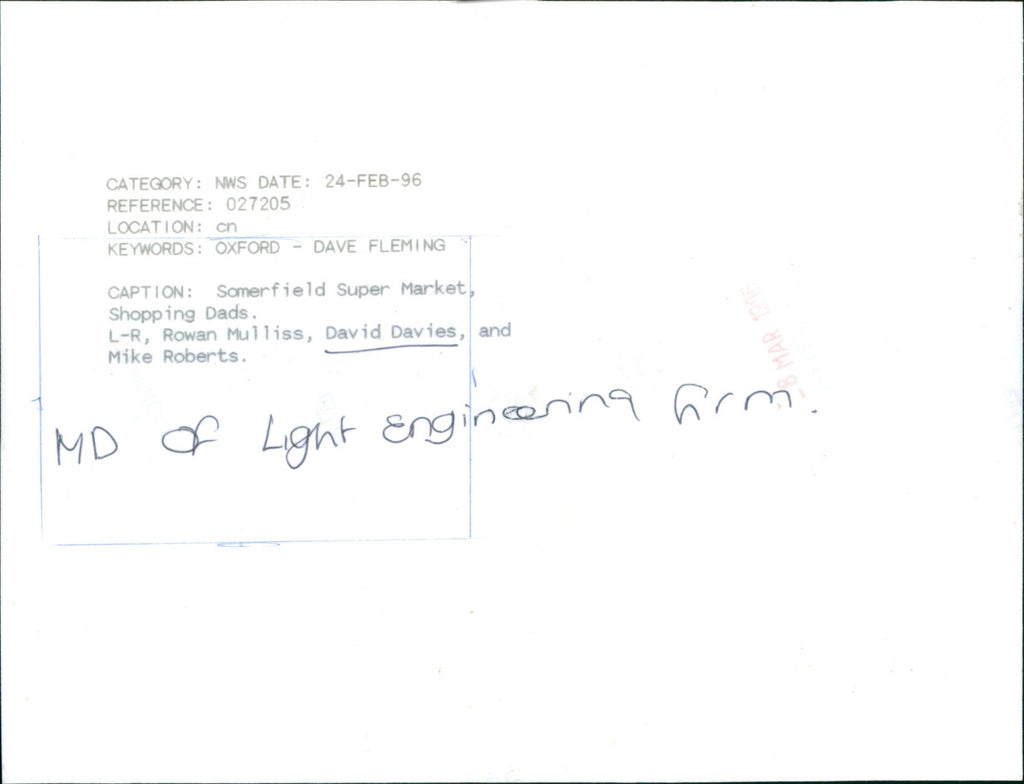 CATEGORY: NWS DATE: 24-FEB-96
REFERENCE: 027205
LOCATION: cn
KEYWORDS: OXFORD - DAVE FLEMING
CAPTION: Somerfield Super Market,
Shopping Dads.
L-R, Rowan Mulliss, David Davies, and
Mike Roberts.
-8 MAR 1996
MD OF Light Engineering firm.